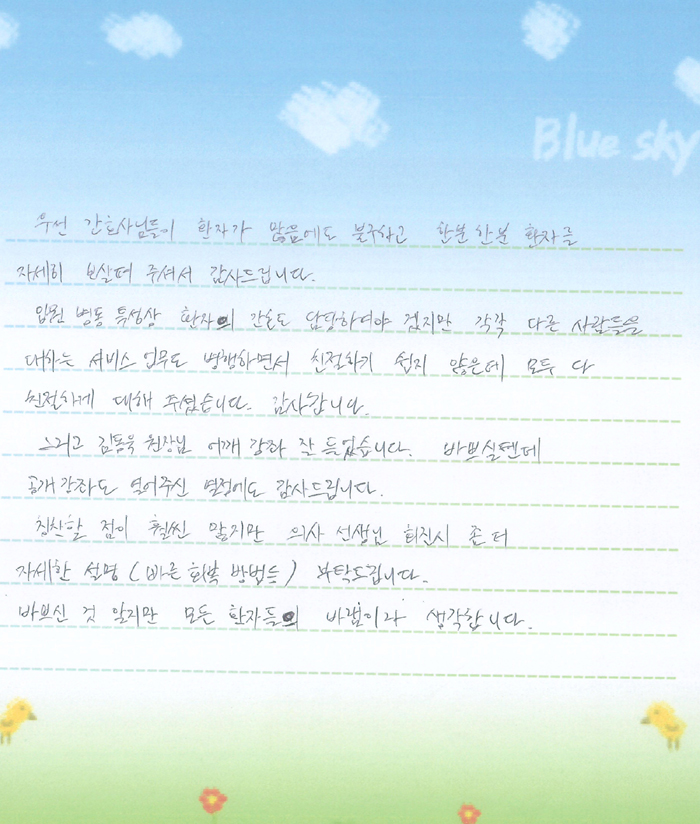 Blue sky
우선 간호사님들이 환자가 많음에도 불구하고 한분한분 환자를
자세히 보살펴 주셔서 감사드립니다.
입원 병동 특성상 환자의 간호도 담당하여야 겠지만 각각 다른 사람들을
대하는 서비스 업무도 병행하면서 친절하기 쉽지 않은데 모두 다
친절하게 대해 주셨습니다. 감사합니다.
그리고 김동욱 원장님 어깨 강좌 잘 들었습니다. 바쁘실텐데
공개강좌도 열어주신 열정에도 감사드립니다.
칭찬할 점이 훨씬 많지만 의사 선생님 회진시 좀 더
자세한 설명 (바른 회복 방법등) 부탁드립니다.
바쁘신 것 알지만 모든 환자들의 바램이라 생각합니다.